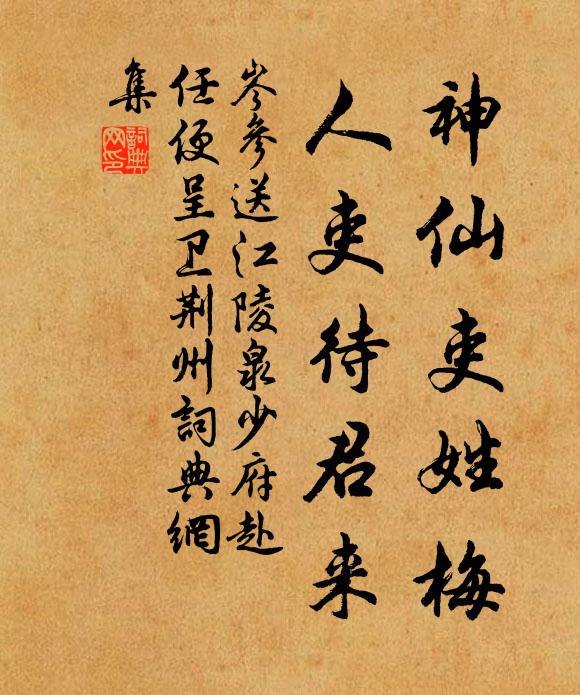 神仙吏姓梅
人吏待君来
岑參送江陵泉少府赴
任便呈卫荆州詞典網
集
詞典
网印